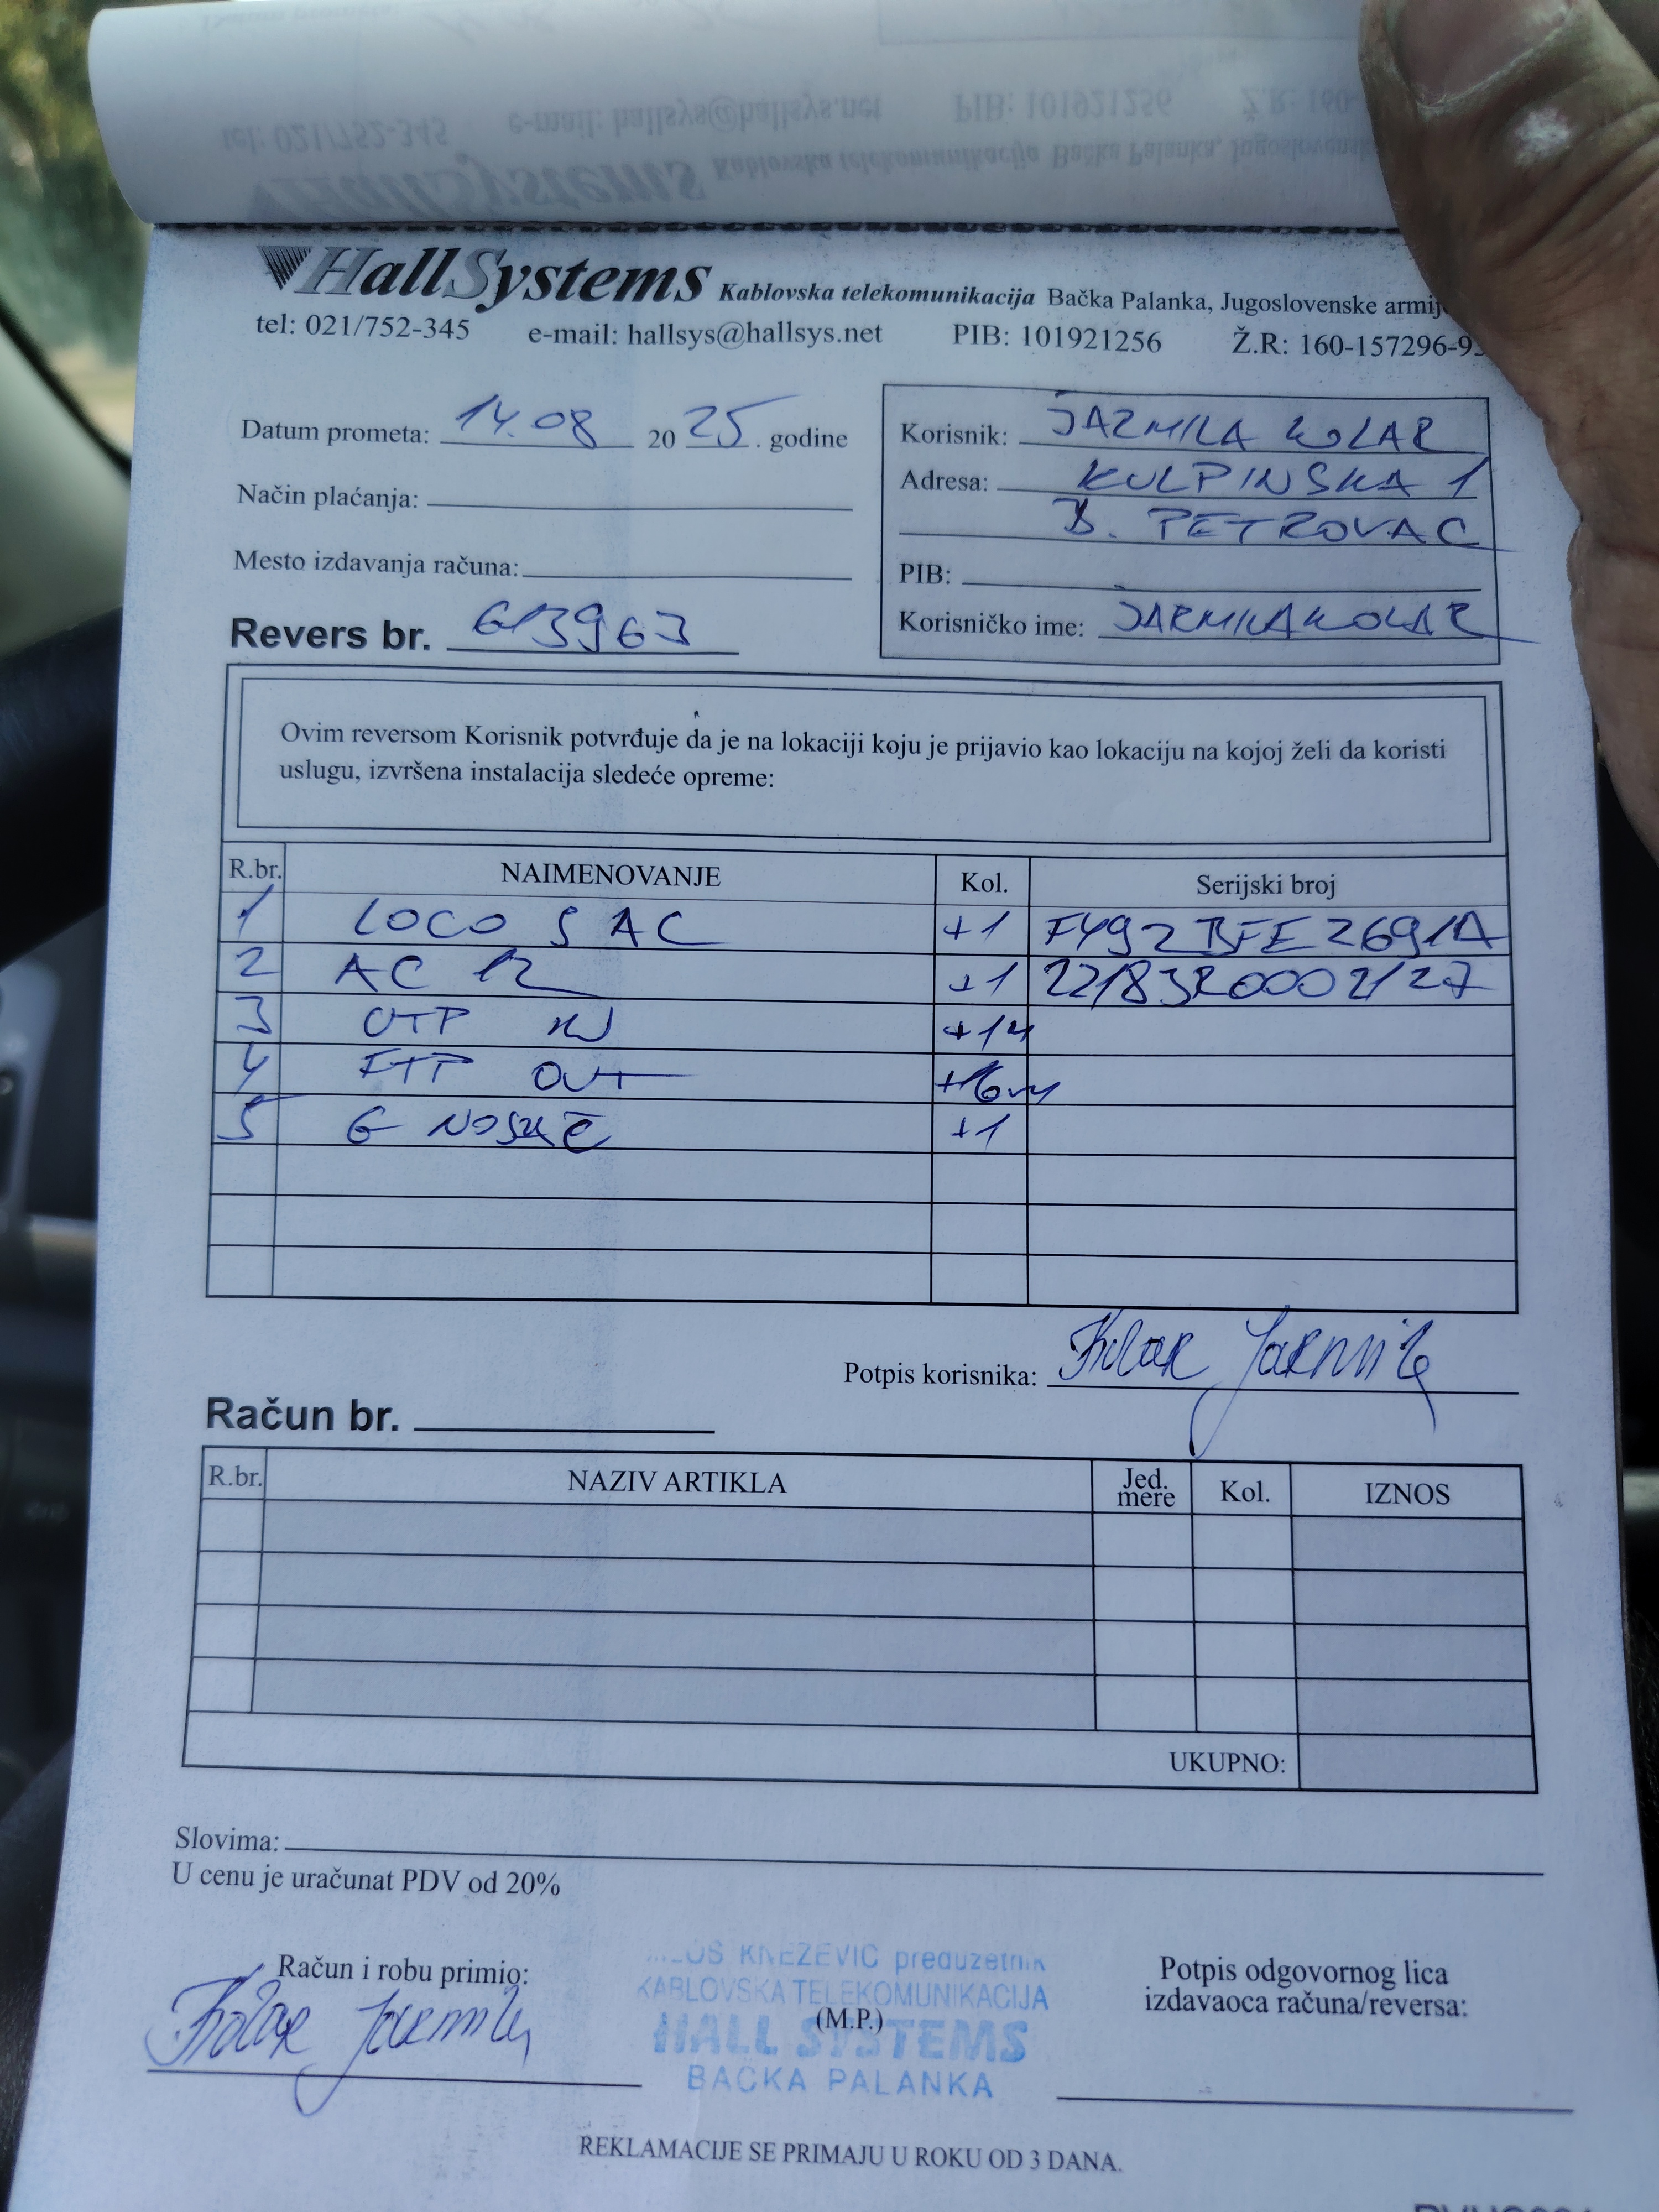 HallSystems Kablovska telekomunikacija Bačka Palanka, Jugoslovenske
tel: 021/752-345 e-mail: hallsys@hallsys.net PIB: 101921256 Ž.R: 160-157296-
Datum prometa: 14.08 2025. godine
Način plaćanja:
Mesto izdavanja računa:
Revers br. 613963
Korisnik: JARMILA KOLAR
Adresa: KULPINSKA 1
B. PETROVAC
PIB:
Korisničko ime: JARMILAKOLAR
Ovim reversom Korisnik potvrđuje da je na lokaciji koju je prijavio kao lokaciju na kojoj želi da koristi
uslugu, izvršena instalacija sledeće opreme:
R.br. NAIMENOVANJE Kol. Serijski broj
1 LOCO 5 AC +1 F492BFE2691A
2 AC 12 +1
3 UTP IN
4 FTP OUT +16m
5 G NOSAČ +1
Potpis korisnika: Kolar Jarmila
Račun br.
R.br. NAZIV ARTIKLA Jed. mere Kol. IZNOS
UKUPNO:
Slovima:
U cenu je uračunat PDV od 20%
Računi robu primio:
Kolar Jarmila
KNEZEVIC preduzetnik
KABLOVSKA TELEKOMUNIKACIJA
(M.P.)
HALL SYSTEMS
BAČKA PALANKA
Potpis odgovornog lica
izdavaoca računa/reversa:
REKLAMACIJE SE PRIMAJU U ROKU OD 3 DANA.